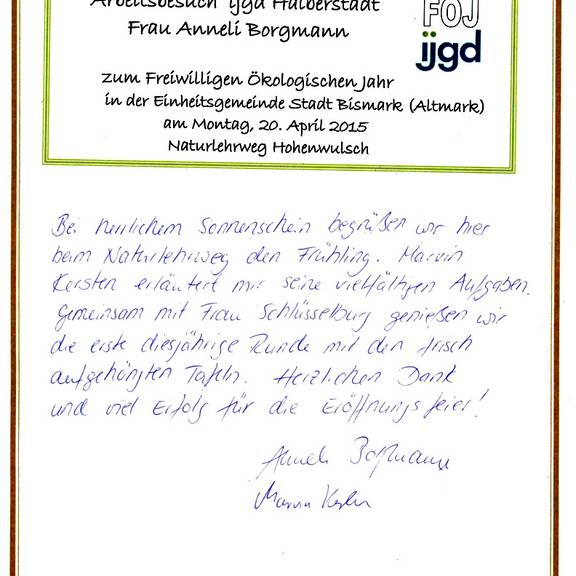 Arbeitsbesuch ijgd Halberstadt
Frau Anneli Borgmann
FÖJ
ijgd
zum Freiwilligen Ökologischen Jahr
in der Einheitsgemeinde Stadt Bismark (Altmark)
am Montag, 20. April 2015
Naturlehrweg Hohenwulsch
Bei herrlichem Sonnenschein begrüßen wir hier
beim Naturlehrweg den Frühling. Marvin
Kersten erläutert mir seine vielfältigen Aufgaben.
Gemeinsam mit Frau Schlüsselburg genießen wir
die erste diesjährige Runde mit den frisch
aufgehängten Tafeln. Herzlichen Dank
und viel Erfolg für die Eröffnungsfeier!
Anneli Borgmann
Marvin Kersten